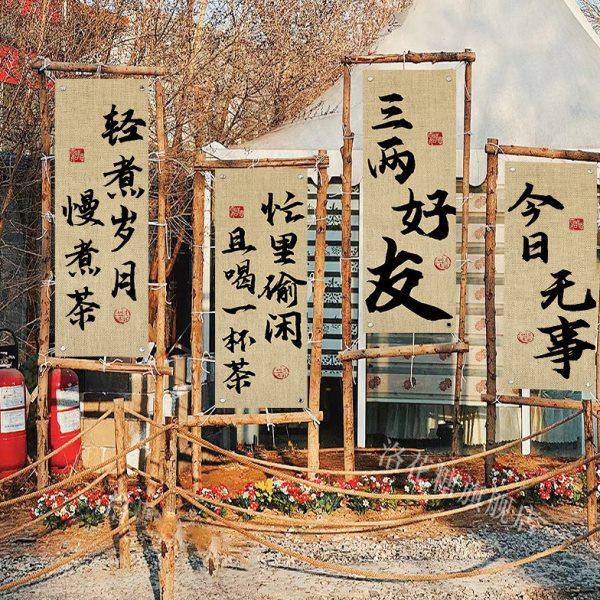 轻煮岁月
慢煮茶
忙里偷闲
且喝一杯茶
三两
好友
今日
无事